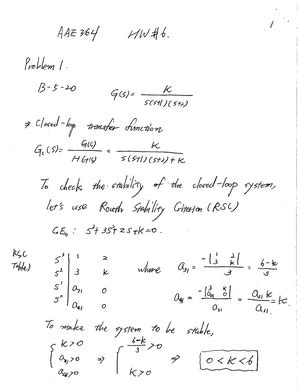 1
AAE 364 HW#6.
Problem 1.
B-5-20 G(s) = K / s(s+1)(s+2)
⇒ Closed-loop transfer function
Gc(s) = G(s) / 1+G(s) = K / s(s+1)(s+2)+K
To check the stability of the closed-loop system,
let's use Routh Stability Criterion (RSC)
CEn : s³+3s²+2s+K=0.
RSC
Table)
s³ | 1 2
s² | 3 K
s¹ | a31 0
s⁰ | a41 0
where a31 = -|1 2; 3 K| / 3 = 6-K / 3
a41 = -|3 K; a31 0| / a31 = a31 K / a31 = K.
To make the system to be stable,
{ K>0 a31>0 a41>0 ⇒ { 6-K / 3 >0 K>0 ⇒ 0<K<6